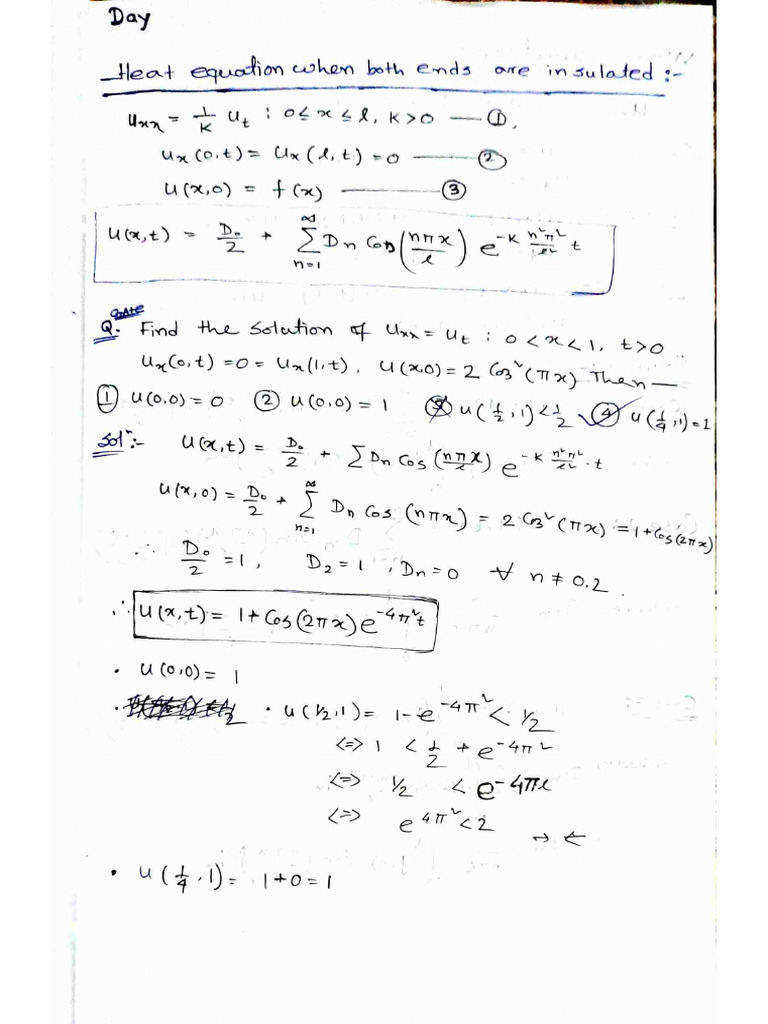 Day
Heat equation when both ends are insulated :-
uₓₓ = 1/K uₜ : 0 ≤ x ≤ l, K > 0 — ①,
uₓ(0,t) = uₓ(l,t) = 0 — ②
u(x,0) = f(x) — ③
u(x,t) = D₀/2 + ∑_{n=1}^{∞} Dₙ Cos(nπx/l) e^{-K n²π²/l² t}
Gate
Q. Find the solution of uₓₓ = uₜ : 0 < x < 1, t > 0
uₓ(0,t) = 0 = uₓ(1,t), u(x,0) = 2 Cos²(πx) Then —
① u(0,0) = 0 ② u(0,0) = 1 ③ u(1/2,1) < 1/2 ✓④ u(1/4,1) = 1
Solⁿ:- u(x,t) = D₀/2 + ∑ Dₙ Cos(nπx/l) e^{-K n²π²/l² · t}
u(x,0) = D₀/2 + ∑_{n=1}^{∞} Dₙ Cos(nπx) = 2 Cos²(πx) = 1 + Cos(2πx)
∴ D₀/2 = 1, D₂ = 1, Dₙ = 0 ∀ n ≠ 0.2.
∴ u(x,t) = 1 + Cos(2πx) e^{-4π²t}
• u(0,0) = 1
• u(1/2,1) = 1 - e^{-4π²} < 1/2
<=> 1 < 1/2 + e^{-4π²}
<=> 1/2 < e^{-4π²}
<=> e^{4π²} < 2 → ←
• u(1/4,1) = 1 + 0 = 1